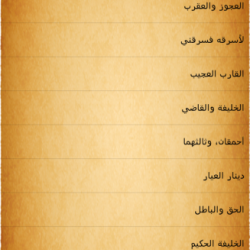 العجوز والعقرب
لأسرقه فسرقني
القارب العجيب
الخليفة والقاضي
أحمقان، وثالثهما
دينار العيار
الحق والباطل
الخليفة الحكيم